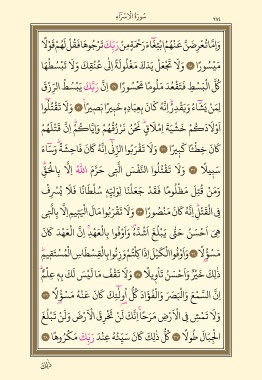 سُورَةُ الْاِسْرَاءِ
وَاِمَّا تُعْرِضَنَّ عَنْهُمُ ابْتِغَٓاءَ رَحْمَةٍ مِنْ رَبِّكَ تَرْجُوهَا فَقُلْ لَهُمْ قَوْلًا
مَيْسُورًا ﴿٢٨﴾ وَلَا تَجْعَلْ يَدَكَ مَغْلُولَةً اِلٰى عُنُقِكَ وَلَا تَبْسُطْهَا
كُلَّ الْبَسْطِ فَتَقْعُدَ مَلُومًا مَحْسُورًا ﴿٢٩﴾ اِنَّ رَبَّكَ يَبْسُطُ الرِّزْقَ
لِمَنْ يَشَٓاءُ وَيَقْدِرُ اِنَّهُ كَانَ بِعِبَادِهِ خَبِيرًا بَصِيرًا ﴿٣٠﴾ وَلَا تَقْتُلُٓوا
اَوْلَادَكُمْ خَشْيَةَ اِمْلَاقٍ نَحْنُ نَرْزُقُهُمْ وَاِيَّاكُمْ اِنَّ قَتْلَهُمْ
كَانَ خِطْـًٔا كَبِيرًا ﴿٣١﴾ وَلَا تَقْرَبُوا الزِّنٰٓى اِنَّهُ كَانَ فَاحِشَةً وَسَٓاءَ
سَبِيلًا ﴿٣٢﴾ وَلَا تَقْتُلُوا النَّفْسَ الَّتِي حَرَّمَ اللّٰهُ اِلَّا بِالْحَقِّ
وَمَنْ قُتِلَ مَظْلُومًا فَقَدْ جَعَلْنَا لِوَلِيِّهِ سُلْطَانًا فَلَا يُسْرِفْ
فِي الْقَتْلِ اِنَّهُ كَانَ مَنْصُورًا ﴿٣٣﴾ وَلَا تَقْرَبُوا مَالَ الْيَتِيمِ اِلَّا بِالَّتِي
هِيَ اَحْسَنُ حَتّٰى يَبْلُغَ اَشُدَّهُ وَاَوْفُوا بِالْعَهْدِ اِنَّ الْعَهْدَ كَانَ
مَسْؤُ۫لًا ﴿٣٤﴾ وَاَوْفُوا الْكَيْلَ اِذَا كِلْتُمْ وَزِنُوا بِالْقِسْطَاسِ الْمُسْتَقِيمِ
ذٰلِكَ خَيْرٌ وَاَحْسَنُ تَأْوِيلًا ﴿٣٥﴾ وَلَا تَقْفُ مَا لَيْسَ لَكَ بِهِ عِلْمٌ
اِنَّ السَّمْعَ وَالْبَصَرَ وَالْفُؤَادَ كُلُّ اُو۬لٰٓئِكَ كَانَ عَنْهُ مَسْؤُ۫لًا ﴿٣٦﴾
وَلَا تَمْشِ فِي الْاَرْضِ مَرَحًا اِنَّكَ لَنْ تَخْرِقَ الْاَرْضَ وَلَنْ تَبْلُغَ
الْجِبَالَ طُولًا ﴿٣٧﴾ كُلُّ ذٰلِكَ كَانَ سَيِّئُهُ عِنْدَ رَبِّكَ مَكْرُوهًا ﴿٣٨﴾
ذٰلِكَ